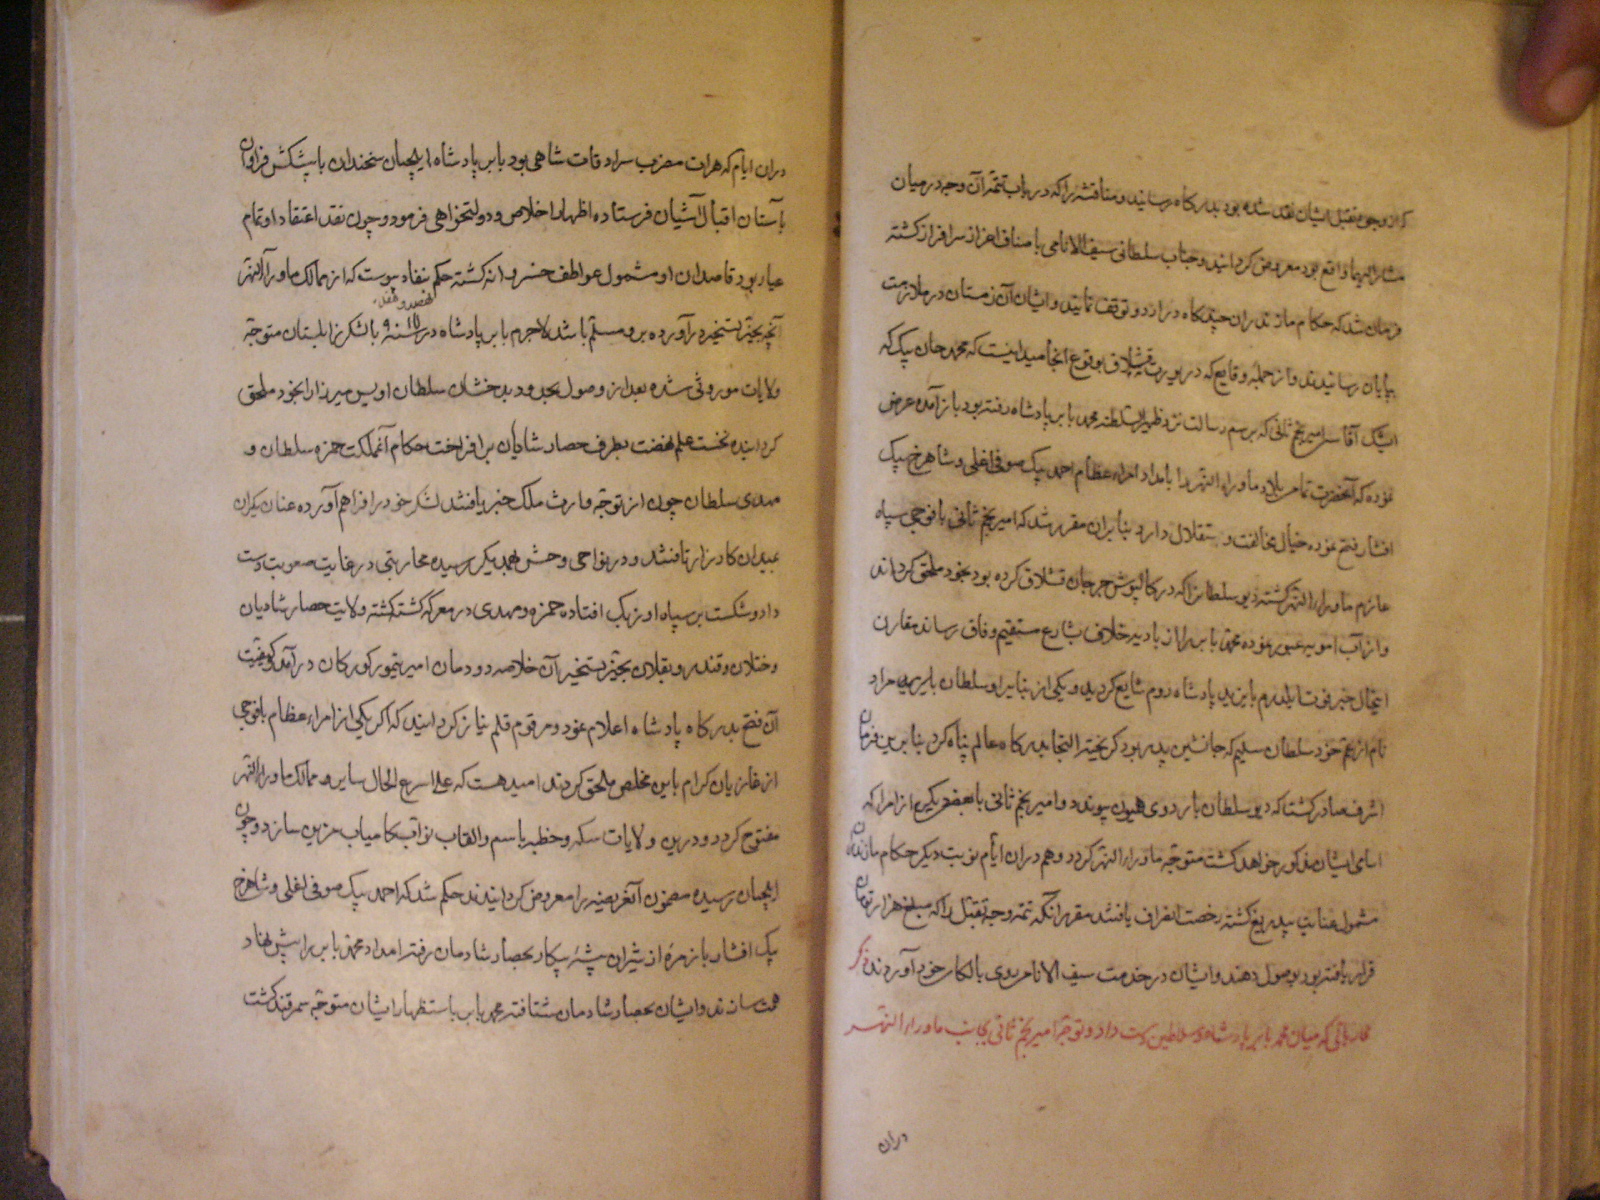 که از وجوه تقبل ایشان نقد شده بود بدرکاه رسانید و مناقشه را که در باب تتمه آن وجه در میان
مشار الیهما واقع بود معروض کردانید و جناب سلطانی سیف الانامی باصناف اعزاز سرافراز کشته
فرمان شد که حکام مازندران چندکاه در اردو توقف نمایند و ایشان آن زمستان در ملازمت
بپایان رسانیدند و از جمله وقایع که در یورت قشلاق بوقوع انجامید اینست که محمد جان بیک که
ایشک آقاسی امیر نجم ثانی که برسم رسالت نزد ظهیر السلطنه محمد بابر پادشاه رفته بود باز آمده عرض
نموده که آنحضرت تمامی بلاد ماوراء النهر را بامداد امراء عظام احمد بیک صوفی اغلی و شاهرخ بیک
افشار فتح نموده خیال مخالفت و استقلال دارد بنابران مقرر شد که امیر نجم ثانی با فوجی سپاه
عازم ماوراء النهر کشته دیو سلطان را که در کالپوش جرجان قشلاق کرده بود بخود ملحق کرداند
و از آب امویه عبور نموده محمد بابر را از بادیه خلاف بشارع مستقیم وفاق رساند مقارن
اینحال خبر فوت ایلدرم بایزید پادشاه روم شایع کردید و یکی از بنایر او سلطان
نام از عم خود سلطان سلیم که جانشین پدر بود کریخته التجا بدرکاه عالم پناه کرد بنابرین فرمان
اشرف صادر کشت که دیو سلطان باردوی همیون پیوندد و امیر نجم ثانی با بعضی دیکر از امرا که
اسامی ایشان مذکور خواهد کشت متوجه ماوراء النهر کردد و هم دران ایام نوبت دیکر حکام مازندران
مشمول عنایت بیدریغ کشته رخصت انصراف یافتند مقرر آنکه تتمه وجه تقبل را که مبلغ هزار تومان
قرار یافته بود بوصول دهند و ایشان در خدمت سیف الانام روی بالکاء خود آوردند ذکر
محارباتی که میان محمد بابر پادشاه و سلاطین دست داد و توجه امیر نجم ثانی بجانب ماوراء النهر
دران
دران ایام که هرات مضرب سرادقات شاهی بود بابر پادشاه ایلچیان سخندان با پیشکش فراوان
بآستان اقبال آشیان فرستاده اظهار اخلاص و دولتخواهی فرمود و چون نقد اعتقاد او تمام
عیار بود قاصدان او مشمول عواطف خسروانه کشته حکم بنفاد پیوست که از ممالک ماوراء النهر
نهصد و هفده
آنچه بحیز تسخیر درآورده برو مسلم باشد لاجرم بابر پادشاه در سنه ۹۱۷ با لشکر زابلستان متوجه
ولایات موروثی شده بعد از وصول بحدود بدخشان سلطان اویس میرزا را بخود ملحق
کردانیده نخست علم نهضت بطرف حصار شادمان برافراخت حکام آنمملکت حمزه سلطان و
مهدی سلطان چون از توجه وارث ملک خبر یافتند لشکر خود را فراهم آورده عنان یکران
بمیدان کارزار تافتند و در نواحی وخش بهمدیکر رسیده محاربتی در غایت صعوبت دست
داد و شکست بر سپاه اوزبک افتاده حمزه و مهدی در معرکه کشته کشته ولایت حصار شادمان
و ختلان و قندز و بقلان بحیز تسخیر آن خلاصه دودمان امیر تیمور کورکان درآمد و کیفیت
آن فتح بدرکاه پادشاه اعلام نمود و مرقوم قلم نیاز کردانید که اکر یکی از امراء عظام با فوجی
از غازیان کرام باین مخلص ملحق کردند امید هست که علی اسرع الحال سایر ممالک ماوراء النهر
مفتوح کردد و درین ولایات سکه و خطبه باسم و القاب نواب کامیاب مزین سازد و چون
ایلچیان رسیده مضمون آنعریضه را معروض کردانیدند حکم شد که احمد بیک صوفی اغلی و شاهرخ
بیک افشار با زمره از شیران بیشه پیکار بحصار شادمان رفته امداد محمد بابر را پیش نهاد
همت سازند و ایشان بحصار شادمان شتافته محمد بابر باستظهار ایشان متوجه سمرقند کشت